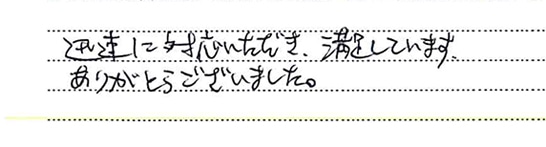 迅速に対応いただき、満足しています。
ありがとうございました。